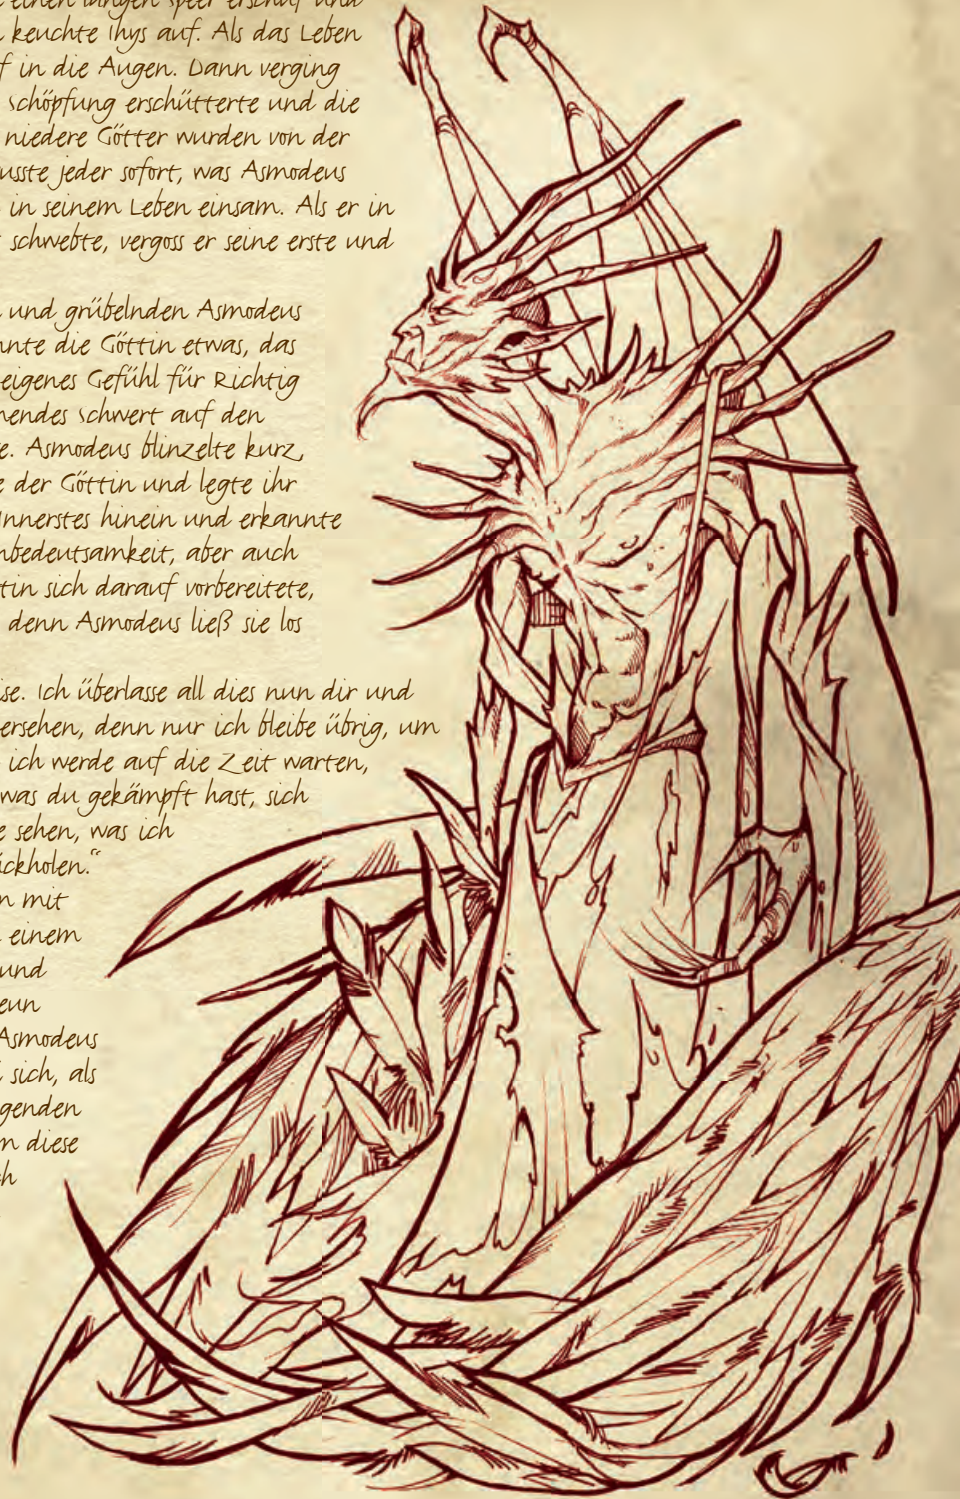 einen langen Speer erschuf und
keuchte Ihys auf. Als das Leben
f in die Augen. Dann verging
Schöpfung erschütterte und die
niedere Götter wurden von der
usste jeder sofort, was Asmodeus
in seinem Leben einsam. Als er in
schwebte, vergoss er seine erste und
und grübelnden Asmodeus
nnte die Göttin etwas, das
eigenes Gefühl für Richtig
nendes Schwert auf den
e. Asmodeus blinzelte kurz,
e der Göttin und legte ihr
Innerstes hinein und erkannte
nbedeutsamkeit, aber auch
tin sich darauf vorbereitete,
denn Asmodeus ließ sie los
ise. Ich überlasse all dies nun dir und
ersehen, denn nur ich bleibe übrig, um
ich werde auf die Zeit warten,
was du gekämpft hast, sich
e sehen, was ich
ückholen.“
n mit
einem
und
eun
Asmodeus
sich, als
genden
n diese
ch